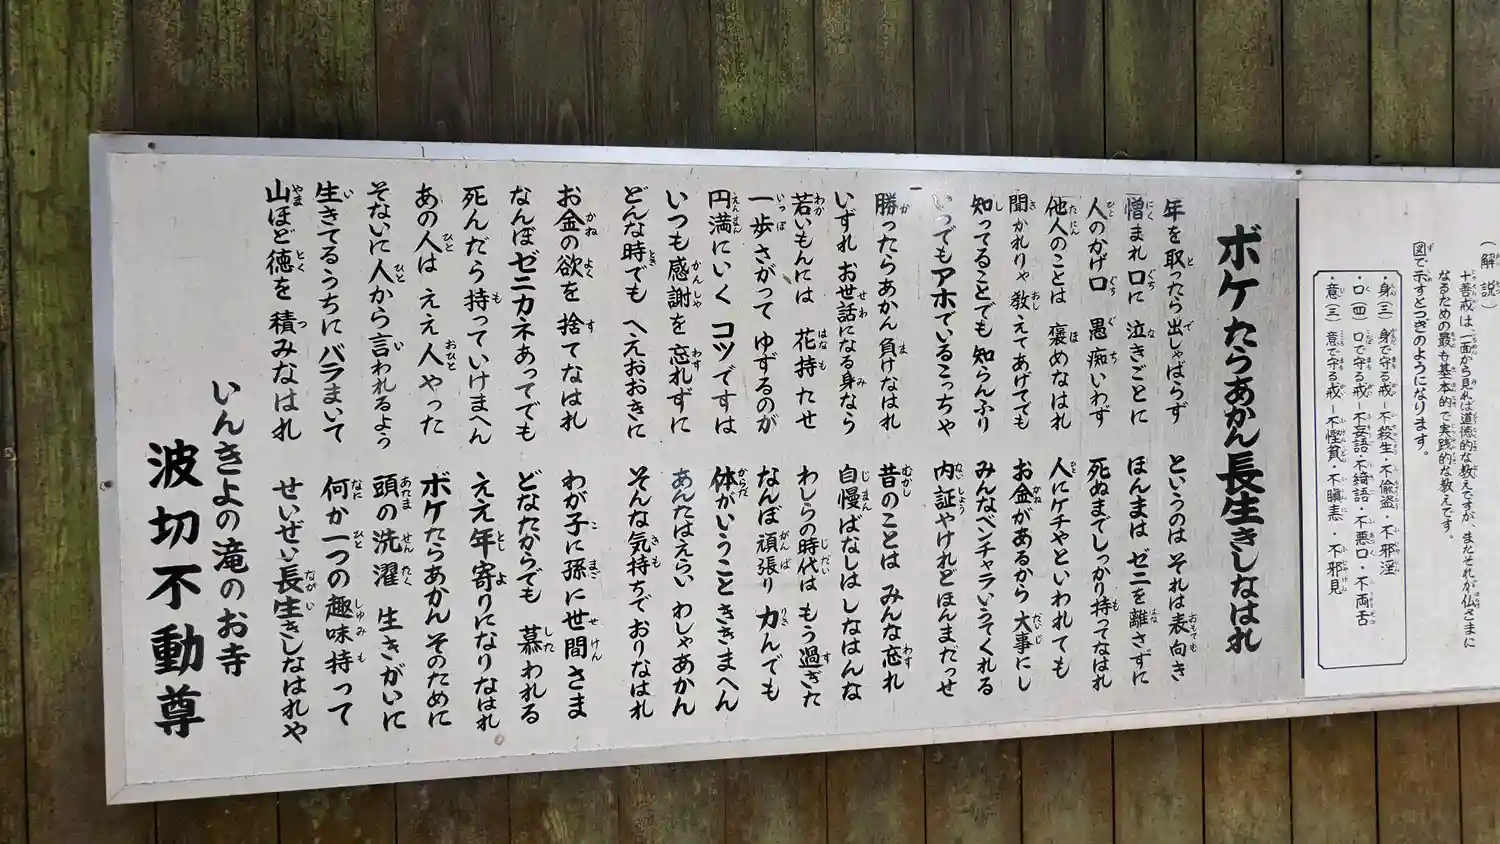 (解説)
十善戒は、一面から見れば道徳的な教えですが、またそれが仏さまに
なるための最も基本的で実践的な教えです。
図で示すとつぎのようになります。
・身(三)身で守る戒-不殺生・不偸盗・不邪淫
・口(四)口で守る戒-不妄語・不綺語・不悪口・不両舌
・意(三)意で守る戒-不慳貪・不瞋恚・不邪見
ボケたらあかん長生きしなはれ
年を取ったら出しゃばらず
憎まれ口に泣きごとに
人のかげ口 愚痴いわず
他人のことは 褒めなはれ
聞かれりゃ教えてあげてても
知ってることでも知らんふり
いつでもアホでいるこっちゃ
勝ったらあかん負けなはれ
いずれお世話になる身なら
若いもんには 花持たせ
一歩さがってゆずるのが
円満にいく コツですは
いつも感謝を忘れずに
どんな時でも へえおおきに
お金の欲を捨てなはれ
なんぼゼニカネあってでも
死んだら持っていけまへん
あの人は ええ人やった
そないに人から言われるよう
生きてるうちにバラまいて
山ほど徳を積みなはれ
というのは それは表向き
ほんまは ゼニを離さずに
死ぬまでしっかり持ってなはれ
人にケチやといわれても
お金があるから 大事にし
みんなベンチャラいうてくれる
内証やけれどほんまだっせ
昔のことは みんな忘れ
自慢ばなしは しなはんな
わしらの時代は もう過ぎた
なんぼ頑張り 力んでも
体がいうこと ききまへん
あんたはえらい わしゃあかん
そんな気持ちでおりなはれ
わが子に孫に世間さま
どなたからでも 慕われる
ええ年寄りになりなはれ
ボケたらあかん そのために
頭の洗濯 生きがいに
何か一つの趣味持って
せいぜい長生きしなはれや
いんきよの滝のお寺
波切不動尊